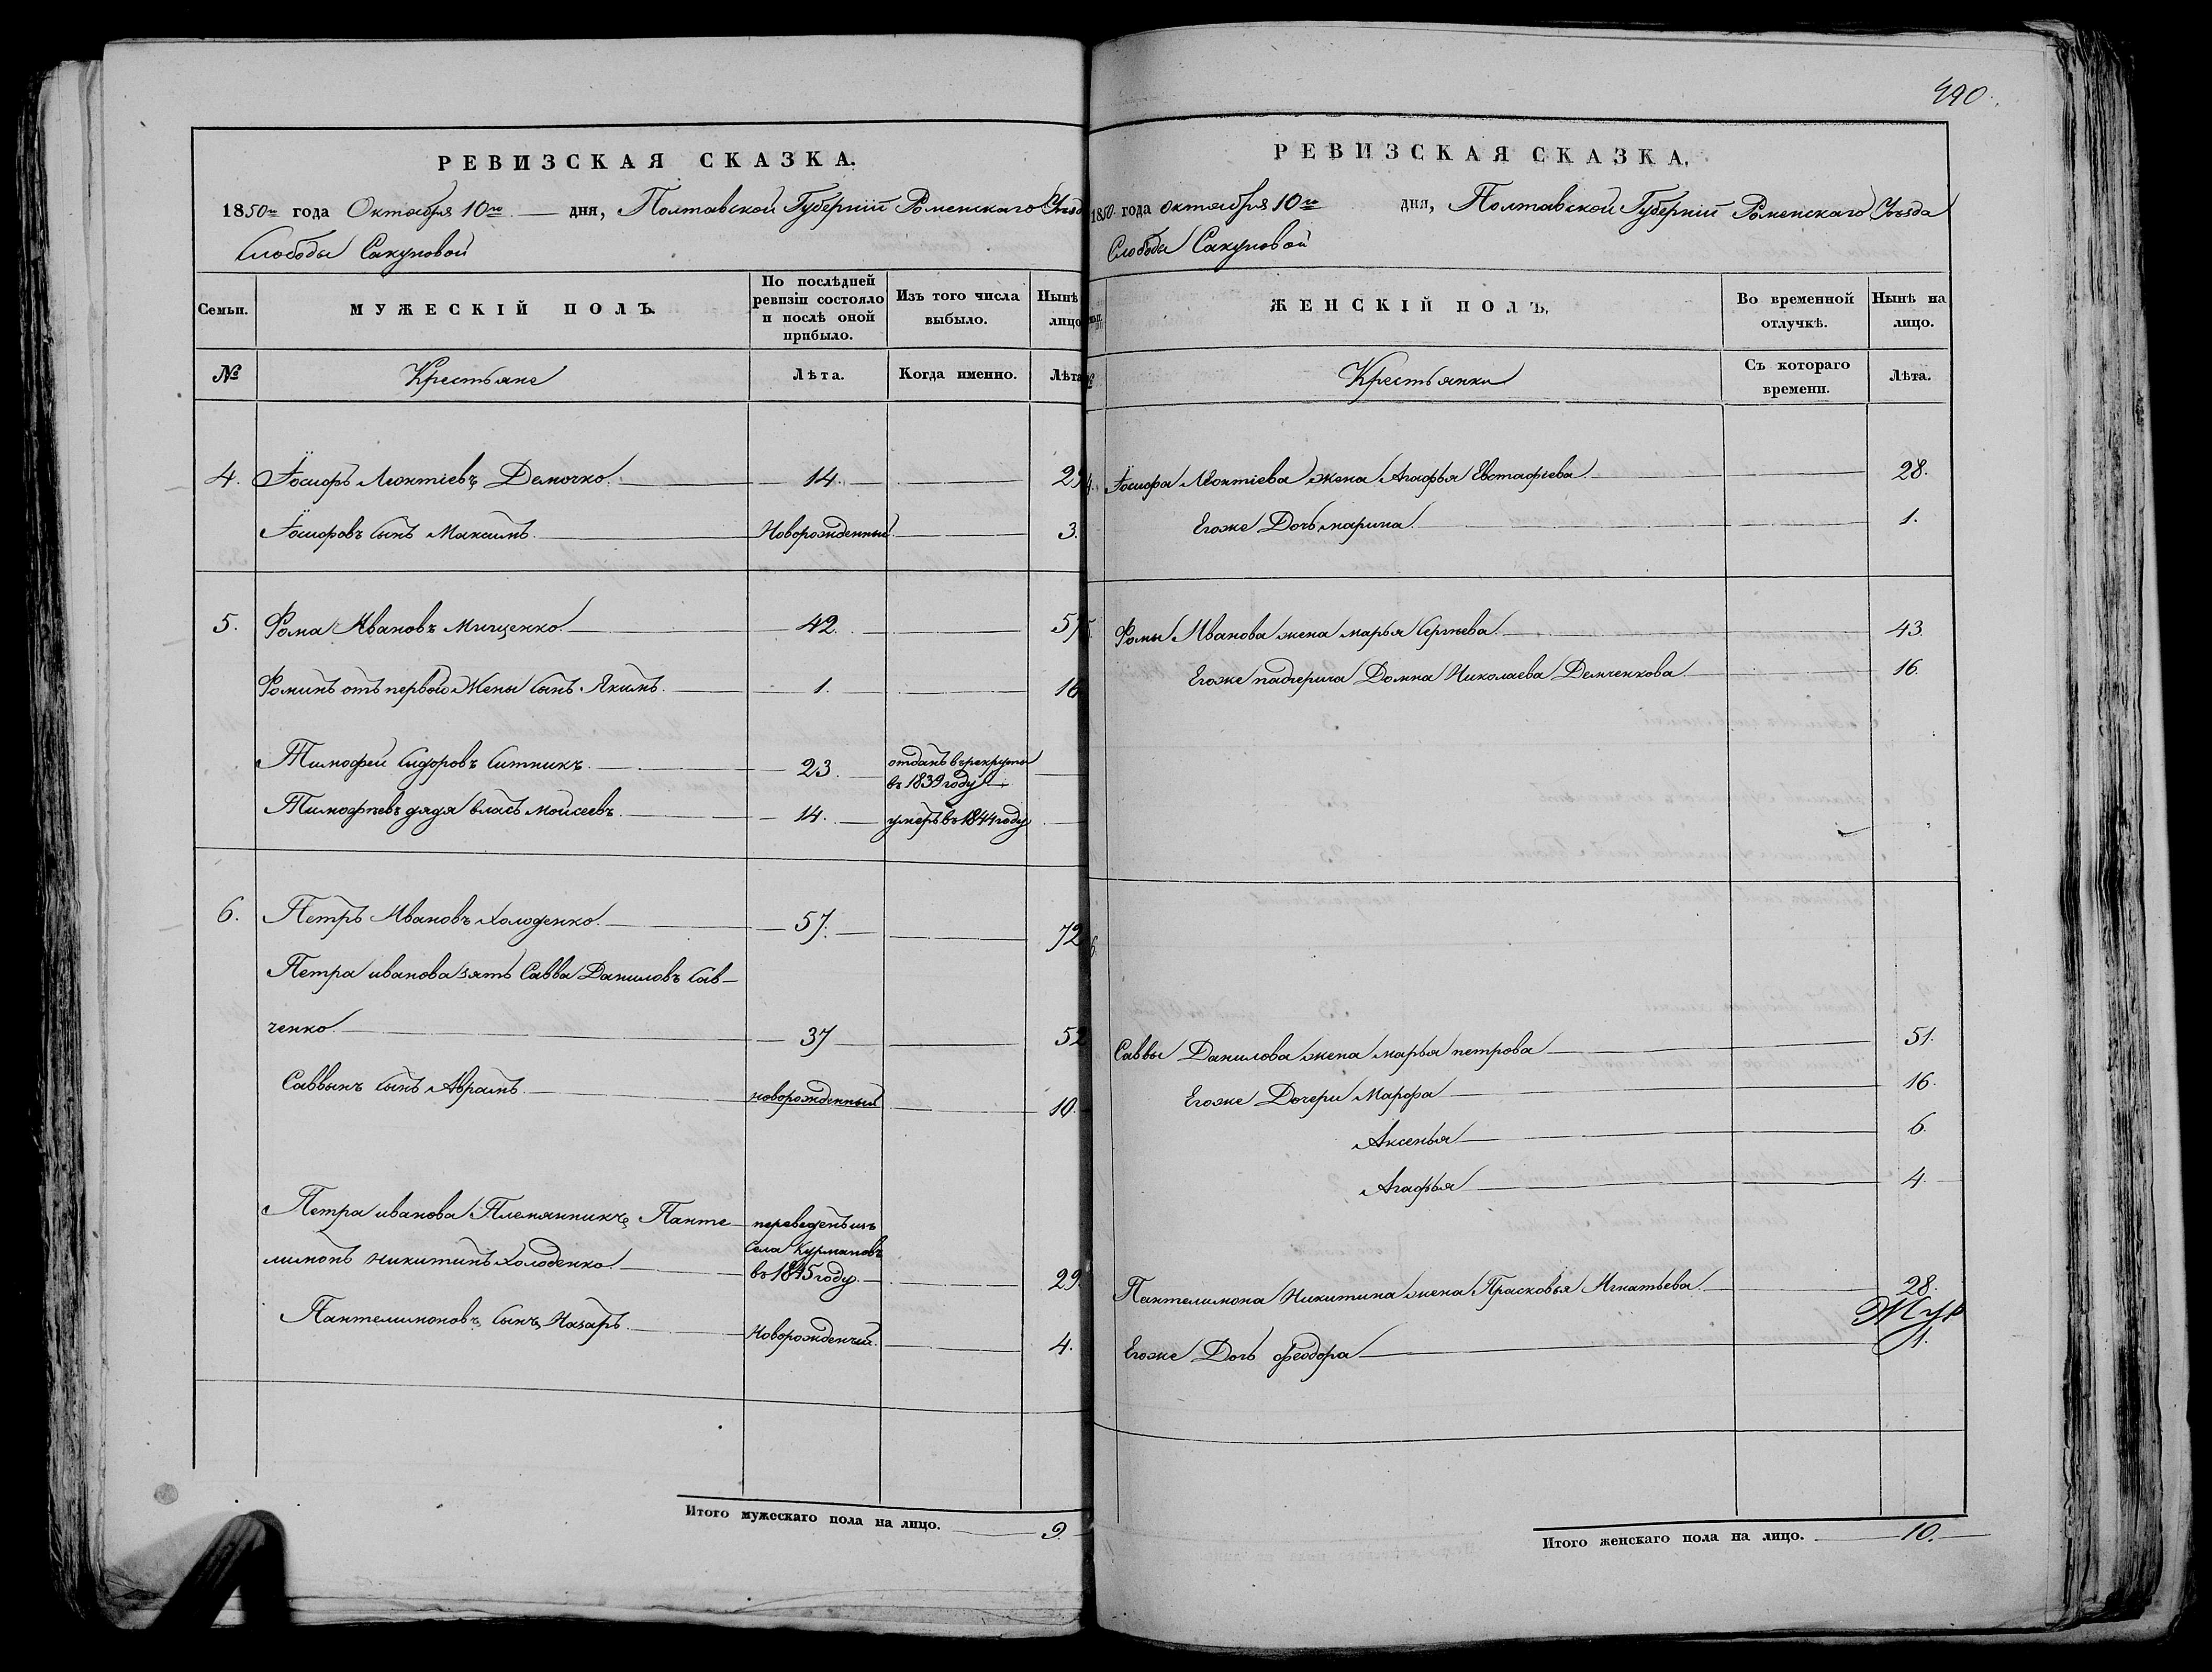 РЕВИЗСКАЯ СКАЗКА.
1850го года Октября 10го дня, Полтавской Губерніи Роменскаго Уѣзд
Слободы Сакуновой
Семьи.
МУЖЕСКІЙ ПОЛЪ.
По послѣдней ревизіи состояло и послѣ оной прибыло.
Изъ того числа выбыло.
Нынѣ лицо
№
Крестьяне
Лѣта.
Когда именно.
Лѣта
4. Леонтіевъ Демочко. 14. 29
сынъ Максимъ. Новорожденный. 3.
5. Фома Ивановъ Мищенко. 42. 57
Фоминъ отъ первой Жены сынъ Якимъ. 1. 16
Тимофей Сидоровъ Ситникъ. 23. отданъ въ рекруты
въ 1839 году
Тимофѣевъ дядя Власъ Моисеевъ. 14. умеръ въ 1844 году
6. Петръ Ивановъ Холоденко. 57. 72
Петра Иванова зять Савва Даниловъ Сав-
ченко. 37 52
Саввынъ сынъ Аврамъ. новорожденный 10.
Петра Иванова Племянникъ Панте- переведенъ изъ
лимонъ Никитинъ Холоденко. села Курмановъ
въ 1845 году. 29.
Пантелимоновъ сынъ Назаръ. Новорожденный. 4.
Итого мужескаго пола на лицо. 9.
490.
РЕВИЗСКАЯ СКАЗКА.
1850. года октября 10го дня, Полтавской Губерніи Роменскаго Уѣзда
Слободы Сакуновой
ЖЕНСКІЙ ПОЛЪ.
Во временной отлучкѣ.
Нынѣ на лицо.
Крестьянки
Съ котораго времени.
Лѣта.
4. Леонтіева жена Агафья Евстафіева. 28.
Егоже Дочь Марина. 1.
5. Фомы Иванова жена Марья Сергѣева. 43.
Егоже падчерица Домна Николаева Демченкова. 16.
6.
Саввы Данилова жена Марья Петрова 51.
Егоже Дочери Марфа 16.
Аксенья 6.
Агафья 4.
Пантелимона Никитина жена Прасковья Игнатьева. 28.
Егоже Дочь Феодора 1.
Итого женскаго пола на лицо. 10.